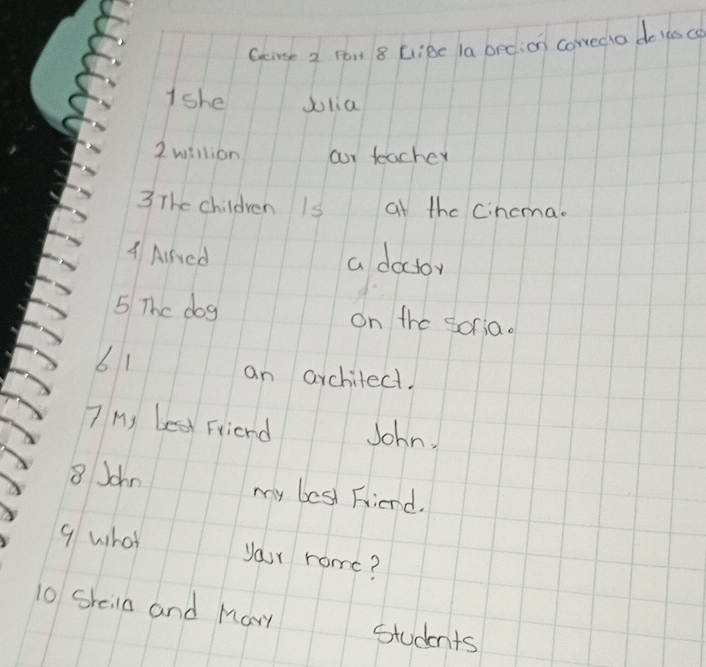 2 8 Elije la opción correcta de las co
1 she Julia
2 willion our teacher
3 The children is at the cinema.
4 Alfred a doctor
5 The dog on the sofia.
6 I an architect.
7 My best Friend John.
8 John my best Friend.
9 what your name?
10 Sheila and Mary Students